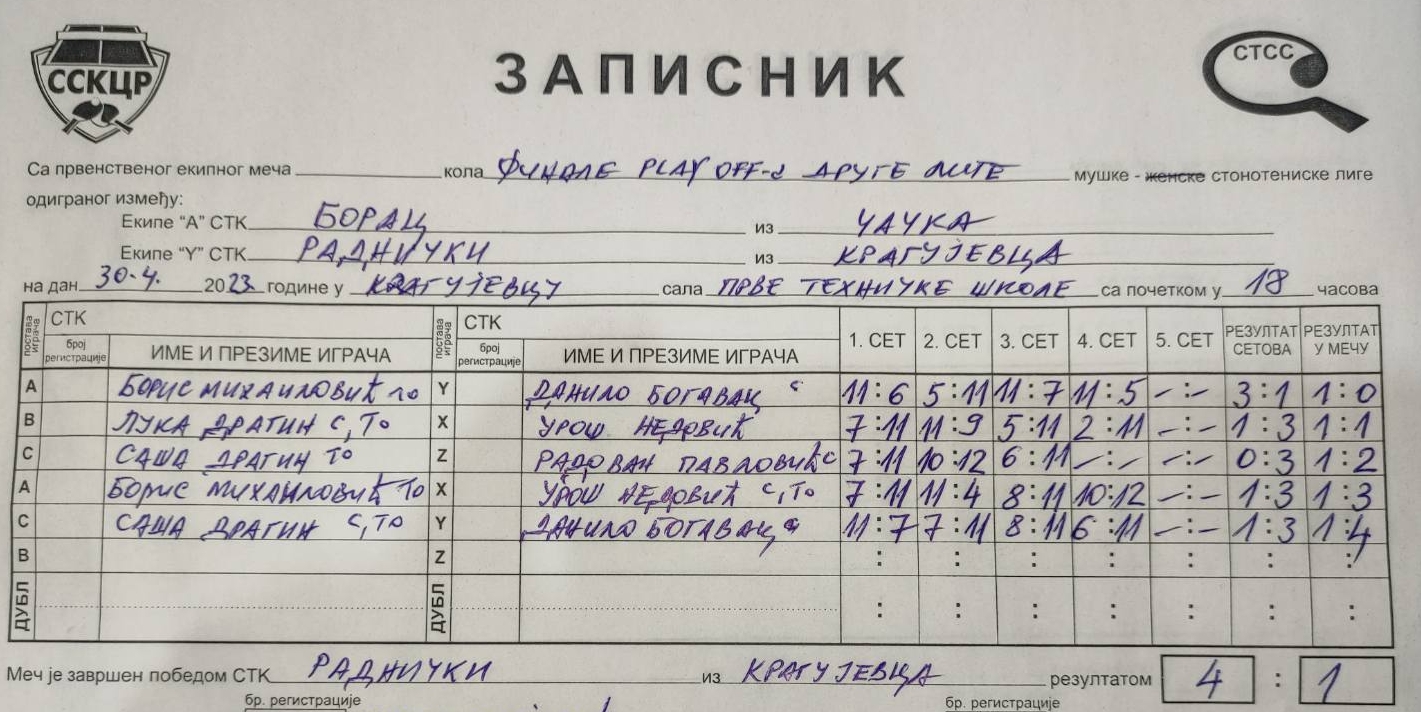 ССКЦР
ЗАПИСНИК
СТСС
Са првенственог екипног меча кола ФИНАЛЕ PLAY OFF-а ДРУГЕ ЛИГЕ мушке - женске стонотениске лиге
одиграног између:
Екипе “А” СТК БОРАЦ из ЧАЧКА
Екипе “Y” СТК РАДНИЧКИ из КРАГУЈЕВЦА
на дан 30.4. 2023 године у КРАГУЈЕВЦУ сала ПРВЕ ТЕХНИЧКЕ ШКОЛЕ са почетком у 18 часова
постава играча СТК постава играча СТК 1. СЕТ 2. СЕТ 3. СЕТ 4. СЕТ 5. СЕТ РЕЗУЛТАТ СЕТОВА РЕЗУЛТАТ У МЕЧУ
број регистрације ИМЕ И ПРЕЗИМЕ ИГРАЧА број регистрације ИМЕ И ПРЕЗИМЕ ИГРАЧА
A БОРИС МИХАИЛОВИЋ то Y ДАНИЛО БОГАВАЦ с 11:6 5:11 11:7 11:5 -:- 3:1 1:0
B ЛУКА ДРАГИН С, ТО X УРОШ НЕДОВИЋ 7:11 11:9 5:11 2:11 -:- 1:3 1:1
C САША ДРАГИН ТО Z РАДОВАН ПАВЛОВИЋ С 7:11 10:12 6:11 -:- -:- 0:3 1:2
A БОРИС МИХАИЛОВИЋ ТО X УРОШ НЕДОВИЋ С, ТО 7:11 11:4 8:11 10:12 -:- 1:3 1:3
C САША ДРАГИН С, ТО Y ДАНИЛО БОГАВАЦ 11:7 7:11 8:11 6:11 -:- 1:3 1:4
B Z : : : : : : :
ДУБЛ ДУБЛ : : : : : : :
Меч је завршен победом СТК РАДНИЧКИ из КРАГУЈЕВЦА резултатом 4 : 1
бр. регистрације бр. регистрације